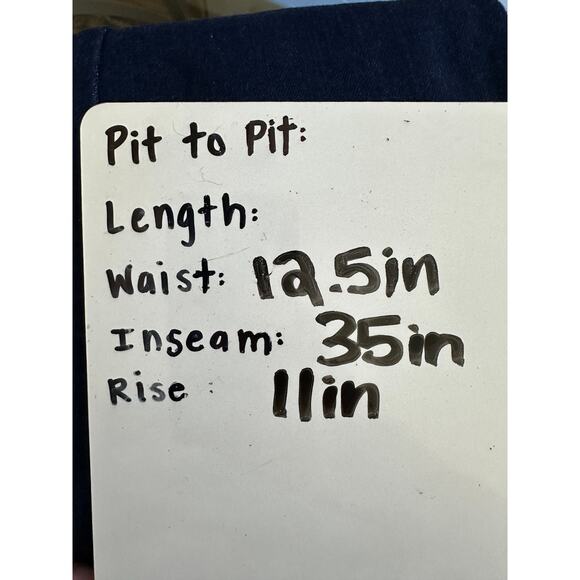 Pit to Pit:
Length:
Waist: 12.5in
Inseam: 35in
Rise : 11in